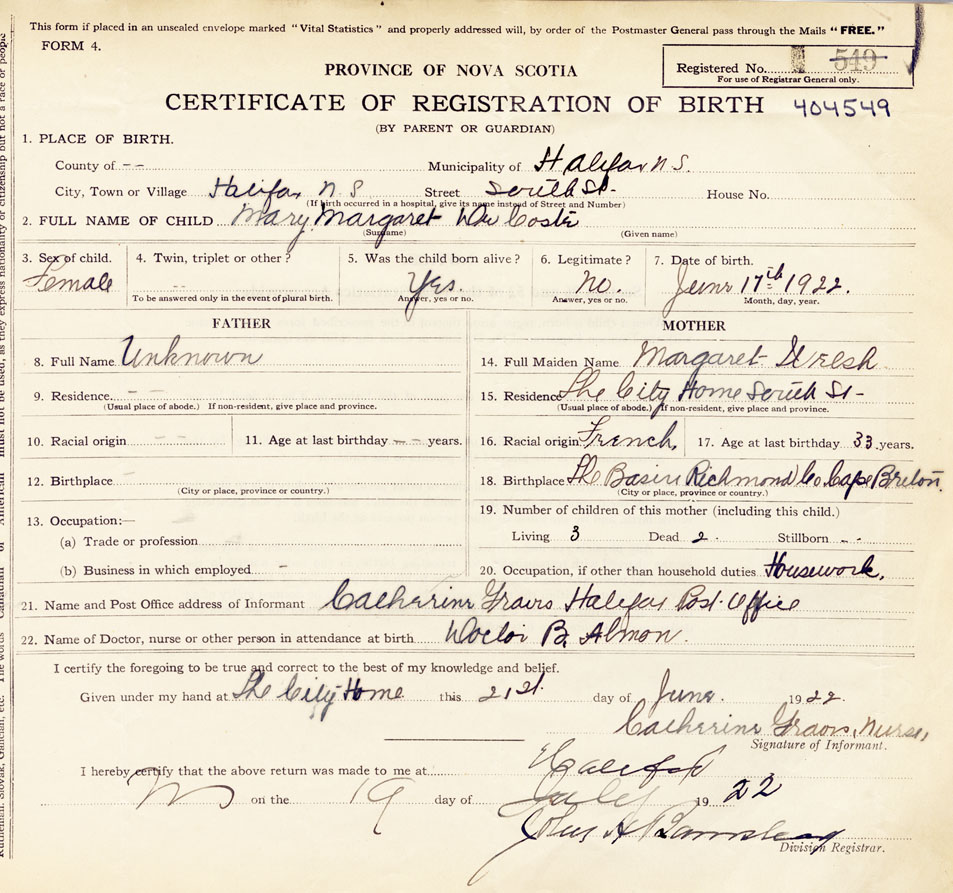 This form if placed in an unsealed envelope marked "Vital Statistics" and properly addressed will, by order of the Postmaster General pass through the Mails "FREE."
FORM 4.
Registered No. 549
For use of Registrar General only.
PROVINCE OF NOVA SCOTIA
CERTIFICATE OF REGISTRATION OF BIRTH 404549
(BY PARENT OR GUARDIAN)
1. PLACE OF BIRTH.
County of -- Municipality of Halifax N.S.
City, Town or Village Halifax N S Street South St- House No.
(If birth occurred in a hospital, give its name instead of Street and Number)
2. FULL NAME OF CHILD Mary Margaret De Coste
(Surname) (Given name)
3. Sex of child. 4. Twin, triplet or other? 5. Was the child born alive? 6. Legitimate? 7. Date of birth.
Female Yes. No. June 17th 1922.
To be answered only in the event of plural birth. Answer, yes or no. Answer, yes or no. Month, day, year.
FATHER MOTHER
8. Full Name Unknown 14. Full Maiden Name Margaret
9. Residence. -- 15. Residence The City Home South St-
(Usual place of abode.) If non-resident, give place and province. (Usual place of abode.) If non-resident, give place and province.
10. Racial origin -- 11. Age at last birthday -- years. 16. Racial origin French, 17. Age at last birthday 33 years.
12. Birthplace - 18. Birthplace The Basin Richmond Co Cape Breton
(City or place, province or country.) (City or place, province or country.)
13. Occupation:— 19. Number of children of this mother (including this child.)
(a) Trade or profession - Living 3 Dead 2. Stillborn --
(b) Business in which employed - 20. Occupation, if other than household duties Housework.
21. Name and Post Office address of Informant Catherine Halifax Post-Office
22. Name of Doctor, nurse or other person in attendance at birth. Doctor B. Almon.
I certify the foregoing to be true and correct to the best of my knowledge and belief.
Given under my hand at The City Home this 21st. day of June. 1922.
Catherine Nurse,
Signature of Informant.
I hereby certify that the above return was made to me at Halifax
NS on the 19 day of July 1922
John A
Division Registrar.